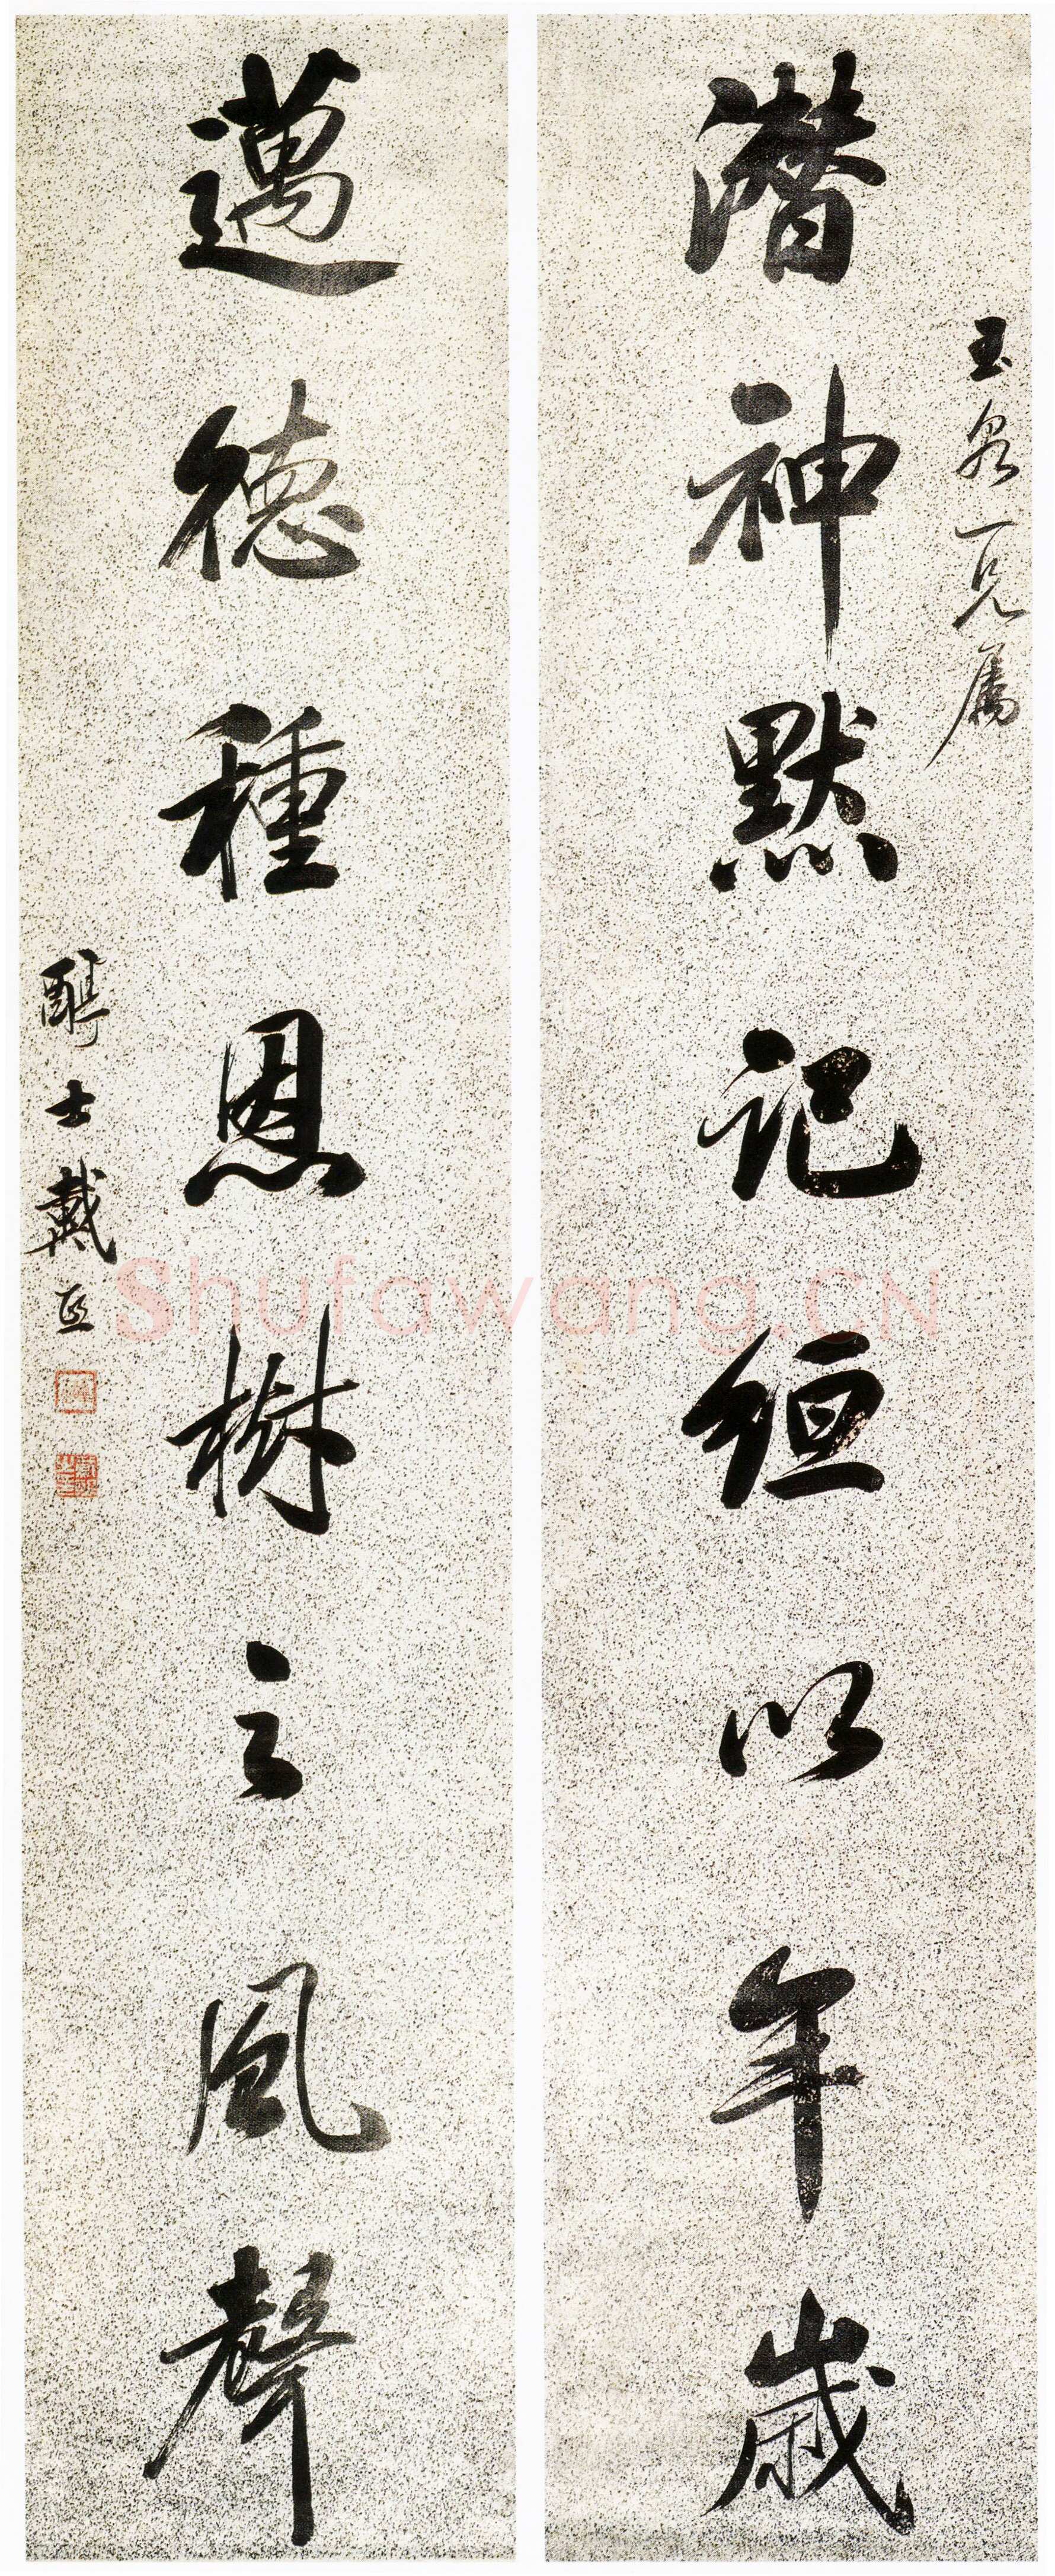 玉泉一兄属
潜神默记𫄶以年岁
邁德種恩樹之風聲
醇士戴熙
Shufawang.CN